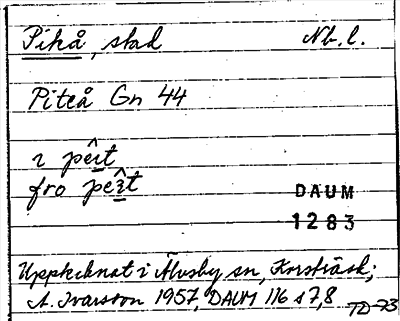 Piteå, stad Nb. l.
Piteå Gn 44
i pêɪt
fro pêɪt
DAUM
1283
Upptecknat i Älvsby sn, Korsträsk;
A. Ivarsson 1957, DAUM 116 s 7,8 TD-73